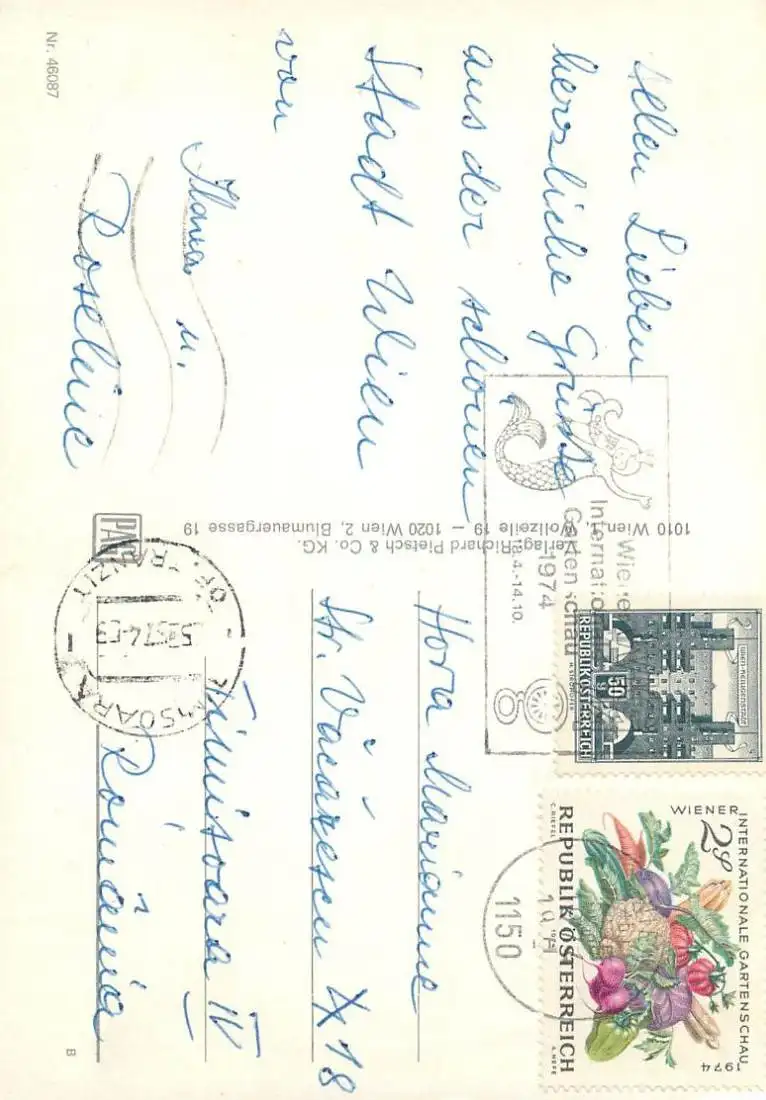 Allen Lieben
herzliche Grüsse
aus der schönen
Stadt Wien
von
u.
Roseline
Nr. 46087
PAG
Verlag Richard Pietsch & Co. KG.
1010 Wien 1, Wollzeile 19 – 1020 Wien 2, Blumauergasse 19
Wiener
Internationale
Gartenschau
1974
14.10.
Hora Marianne
Str. Văcărescu 18
Timisoara IV
România
B
WIEN-HEILIGENSTADT
50 g
REPUBLIK ÖSTERREICH
WIENER
INTERNATIONALE GARTENSCHAU
1974
2 S
REPUBLIK ÖSTERREICH
1150
TIMISOARA